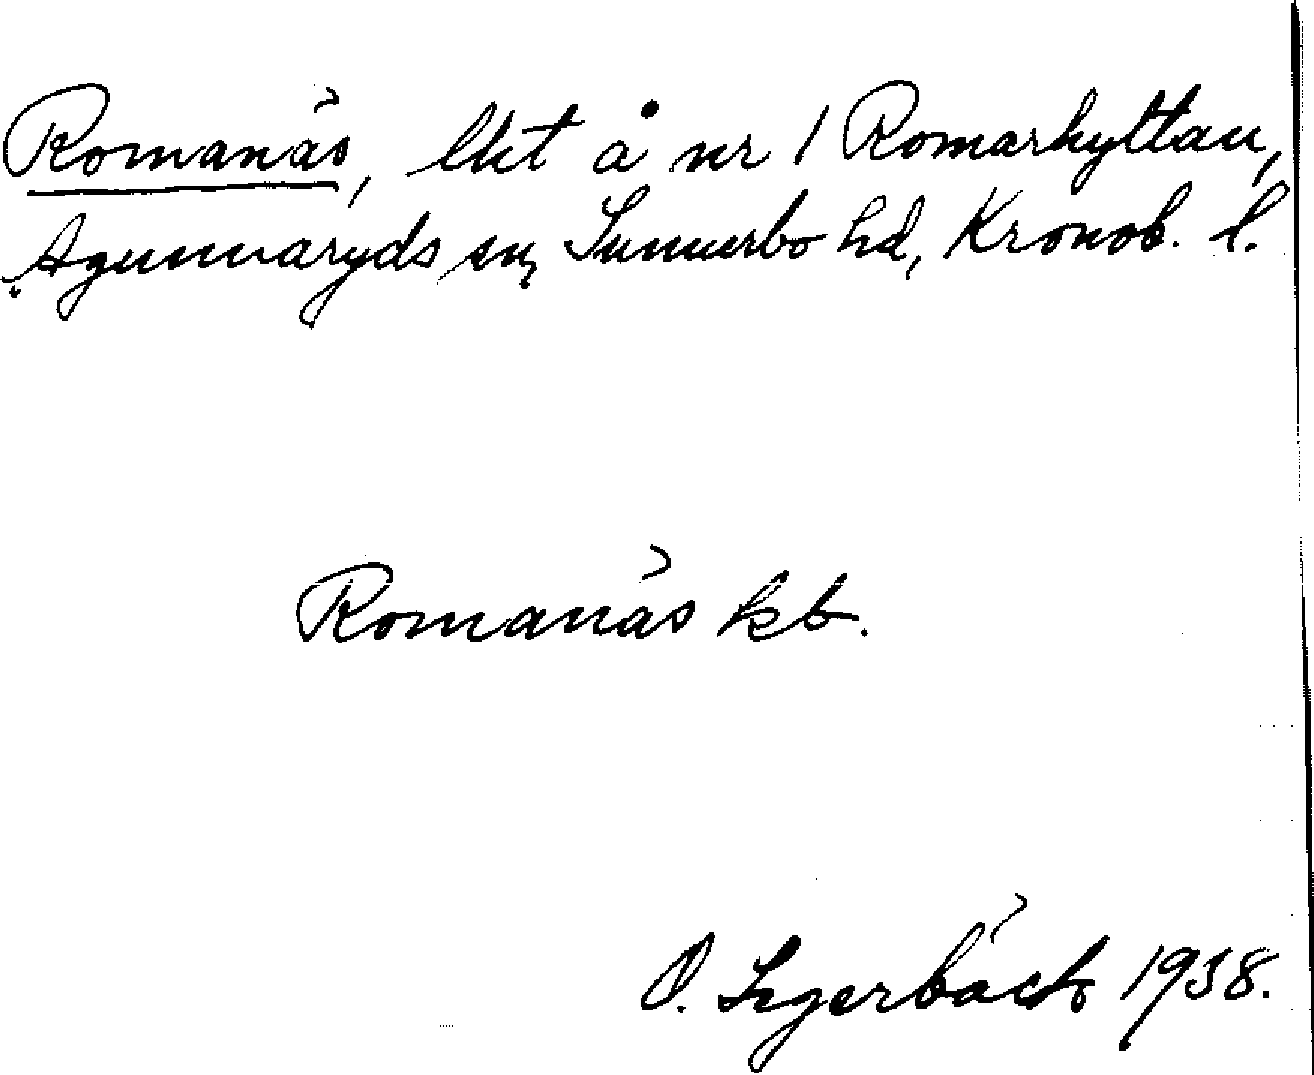 Romanäs, lht å nr 1 Romarhyltan,
Agunnaryds sn, Sunnerbo hd, Kronob. l.
Romanäs kb.
O. Segerbäck 1938.